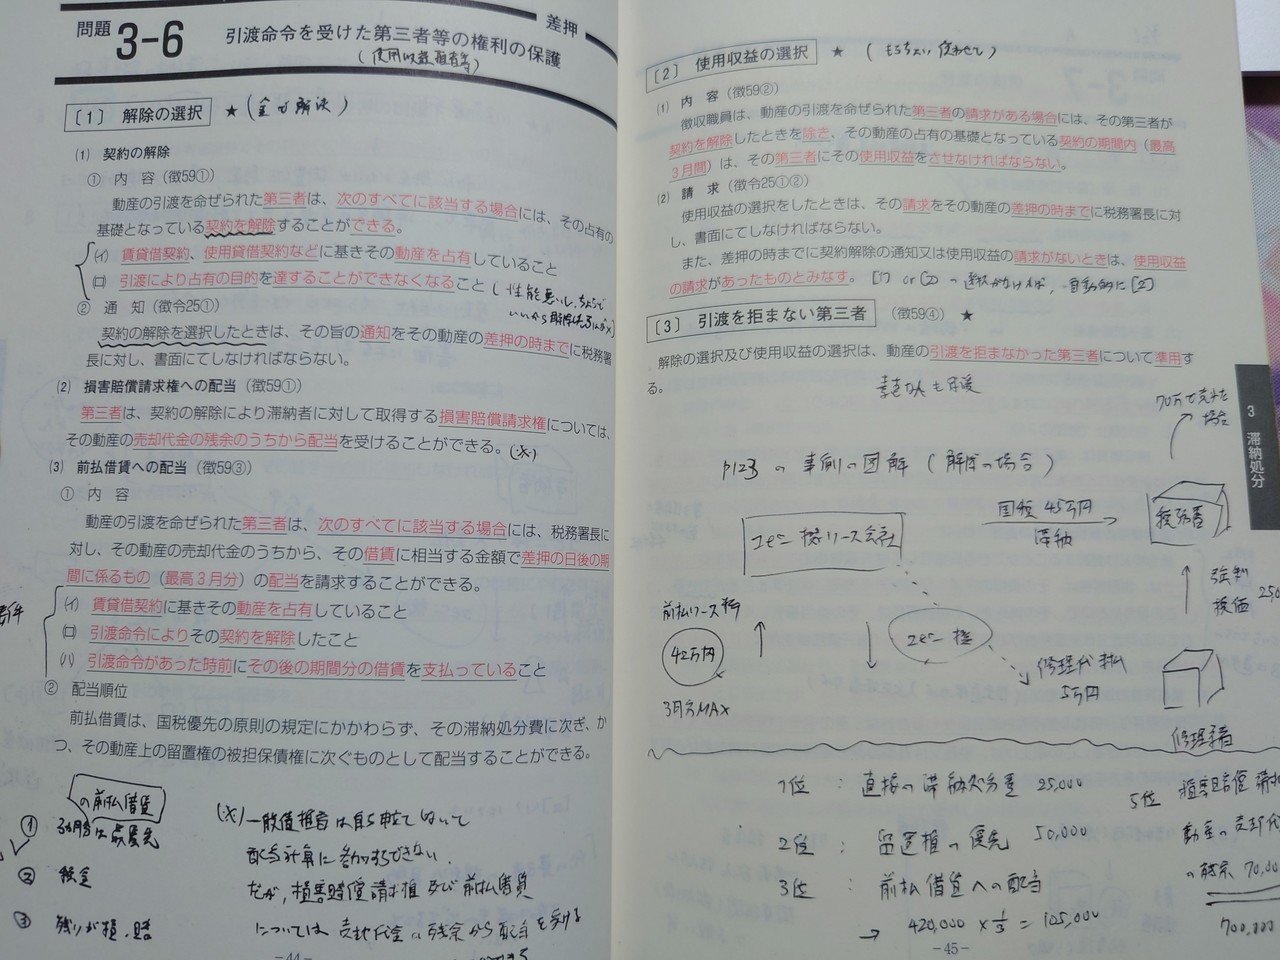 差押
問題 3-6 引渡命令を受けた第三者等の権利の保護
(使用収益権者等)
〔1〕 解除の選択 ★(金で解決)
(1) 契約の解除
① 内 容(徴59①)
動産の引渡を命ぜられた第三者は、次のすべてに該当する場合には、その占有の
基礎となっている契約を解除することができる。
(イ) 賃貸借契約、使用貸借契約などに基きその動産を占有していること
(ロ) 引渡により占有の目的を達することができなくなること
② 通 知(徴令25①)
契約の解除を選択したときは、その旨の通知をその動産の差押の時までに税務署
長に対し、書面にてしなければならない。
(2) 損害賠償請求権への配当(徴59①)
第三者は、契約の解除により滞納者に対して取得する損害賠償請求権については、
その動産の売却代金の残余のうちから配当を受けることができる。(※)
(3) 前払借賃への配当(徴59③)
① 内 容
動産の引渡を命ぜられた第三者は、次のすべてに該当する場合には、税務署長に
対し、その動産の売却代金のうちから、その借賃に相当する金額で差押の日後の期
間に係るもの(最高3月分)の配当を請求することができる。
(イ) 賃貸借契約に基きその動産を占有していること
(ロ) 引渡命令によりその契約を解除したこと
(ハ) 引渡命令があった時前にその後の期間分の借賃を支払っていること
② 配当順位
前払借賃は、国税優先の原則の規定にかかわらず、その滞納処分費に次ぎ、か
つ、その動産上の留置権の被担保債権に次ぐものとして配当することができる。
の前払借賃
① 3ヵ月分は最優先
② 税金
③ 残りが損・賠
(※)一般債権者は自ら申立てしないで
配当計算に参加できない。
だが、損害賠償請求権及び前払借賃
については売却代金の残余から配当を受ける
-44-
〔2〕 使用収益の選択 ★ (もうちょい使わせて)
(1) 内 容(徴59②)
徴収職員は、動産の引渡を命ぜられた第三者の請求がある場合には、その第三者が
契約を解除したときを除き、その動産の占有の基礎となっている契約の期間内(最高
3月間)は、その第三者にその使用収益をさせなければならない。
(2) 請 求(徴令25①②)
使用収益の選択をしたときは、その請求をその動産の差押の時までに税務署長に対
し、書面にてしなければならない。
また、差押の時までに契約解除の通知又は使用収益の請求がないときは、使用収益
の請求があったものとみなす。 〔1〕or〔2〕の選択がなければ、自動的に〔2〕
〔3〕 引渡を拒まない第三者 (徴59④) ★
解除の選択及び使用収益の選択は、動産の引渡を拒まなかった第三者について準用す
る。
3 滞納処分
P123の事例の図解(解除の場合)
70万で売れた
場合
コピー機リース会社
国税 45万円
滞納
税務署
前払リース料
42万円
3月分MAX
コピー機
修理代未払
5万円
強制
換価
修理業者
1位 : 直接の滞納処分費 25,000
2位 : 留置権の優先 50,000
3位 : 前払借賃への配当
→ 420,000 × = 105,000
5位 損害賠償請求
動産の売却代
の残余 70,00
700,000
-45-